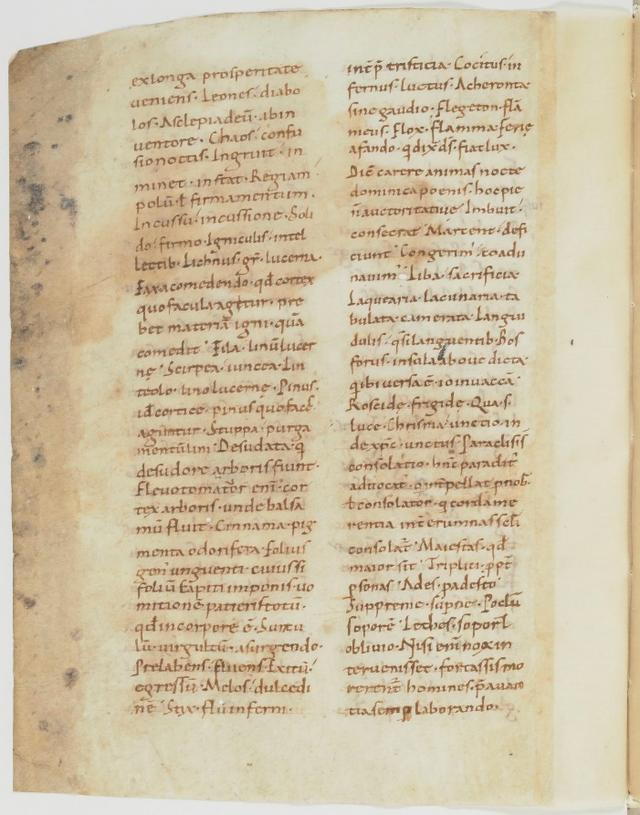 ex longa prosperitate
ueniens· Leones· diabo
los· Asclepiadeū· abin
uentore· Chaos· confu
sio noctis· Ingruit· in
minet· instat· Regiam·
polū· ł firmamentum·
Incussu· incussione· Soli
do· firmo· Igniculis· intel
lectib· Lichnus· gr̄· lucerna·
Faxa comedendo· qđ cortex
quo facula agitur· pre
bet materiā igni· quā
comedit· Fila· linū lucer
nę· Scirpea· iuncea· Lin
teolo· lino lucerne· Pinus·
id cortice· pinus quo face
aguntur· Stuppa· purga
mentū lini· Desudata· q̄
de sudore arboris fiunt·
enī· cor
tex arboris· unde balsa
mū fluit· Cinnama· pig
menta odorifera· folius
unguenti· cuiussi
foliū imponis· uo
mitione totū·
qđ in corpore ē· Surcu
lū· uirgultū· asurgendo·
Prelabens· fluens· Exitū·
egressū· Melos· dulcedi
nē· Styx· flū inferni·
tristicia· Cocitus· in
fernus· luctus· Acheronta·
sine gaudio· Flegeton· flā
meus· Flox· flamma·
afando· q̄ dix̄ ds̄· fiat lux·
Diē carere animas nocte
dominica poenis· hoc pie
n̄ auctoritatiue· Imbuit·
consecrat· Marcent· defi
ciunt· Congerim· coadu
nauim· Liba· sacrificia·
Laquearia· lacunaria· ta
bulata· camerata· Langui
dulis· q̄si languentib· Bos
forus· insula a boue dicta
q̄ ibi uersa ē· io in uaccā·
Roscide· frigide· Qua· s·
luce· Chrisma· unctio· in
de xp̄c· unctus· Paraclisis
consolatio· hinc paraclit
aduocat·
ł consolator· q̄ cordā me
rentia int erumnas seclī
consolat· Maiestas· qđ
maior sit· Triplici· ꝓpt
p̄sonas· Ades· p adesto
Suppreme· supne· Poclū
soporē· Lethes· soporł
oblivio· Nisi enī nox in
teruenisset· fortassis mo
rerent homines· p̄ auari
tia semp laborando·